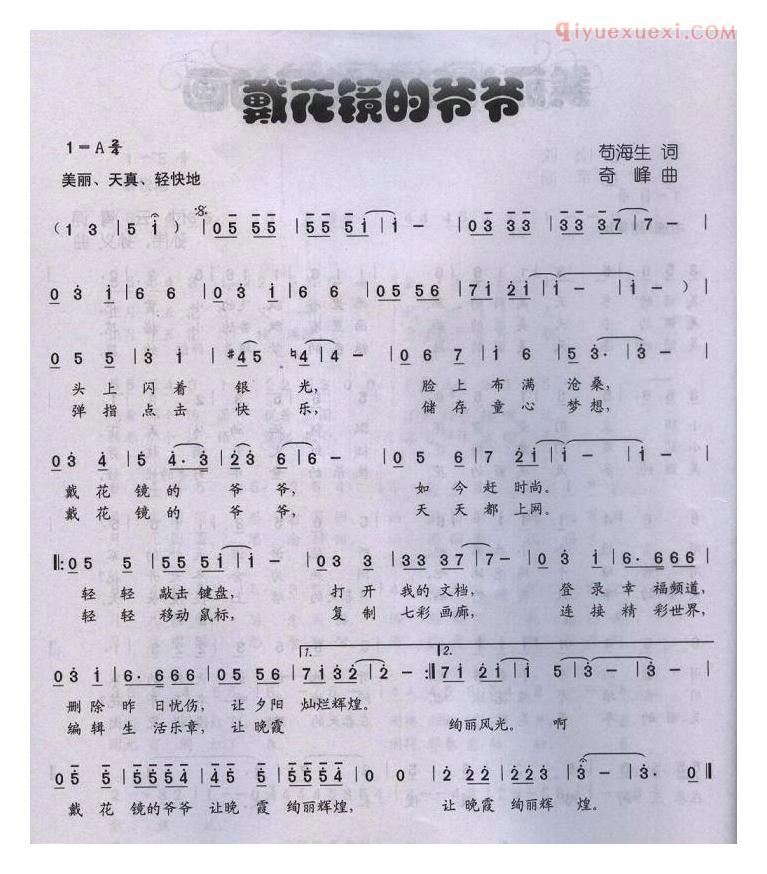 qiyuexuexi.com
戴花镜的爷爷
1=A 2/4
苟海生 词
美丽、天真、轻快地
奇峰 曲
(1 3 | 5 i) | 0 5 5 5 | 5 5 5 i | i - | 0 3 3 3 | 3 3 3 7 | 7 - |
0 3 i | 6 6 | 0 3 i | 6 6 | 0 5 5 6 | 7 i 2 i | i - | i - ) |
0 5 5 | 3 i | #4 5 ♮4 | 4 - | 0 6 7 | i 6 | 5 3· | 3 - |
头上闪着 银 光, 脸上布满 沧桑,
弹指点击 快 乐, 储存童心 梦想,
0 3 4 | 5 4·3 | 2 3 6 | 6 - | 0 5 6 | 7 2 i | i - | i - |
戴花镜的 爷 爷, 如今赶时尚。
戴花镜的 爷 爷, 天天都上网。
‖: 0 5 5 | 5 5 5 i | i - | 0 3 3 | 3 3 3 7 | 7 - | 0 3 i | 6· 6 6 6 |
轻轻 敲击键盘, 打开 我的文档, 登录幸 福频道,
轻轻 移动鼠标, 复制 七彩画廊, 连接精 彩世界,
1.
2.
0 3 i | 6· 6 6 6 | 0 5 5 6 | 7 i 3 2 | 2 - :‖ 7 i 2 i | i 5 | 3 - | 3 - |
删除昨 日忧伤, 让夕阳 灿烂辉煌。
编辑生 活乐章, 让晚霞 绚丽风光。 啊
0 5 5 | 5 5 5 4 | 4 5 5 | 5 5 5 4 | 0 0 | 2 2 2 | 2 2 2 3 | 3 - | 3· 0 ‖
戴花 镜的爷爷 让晚霞 绚丽辉煌, 让晚霞 绚丽辉 煌。